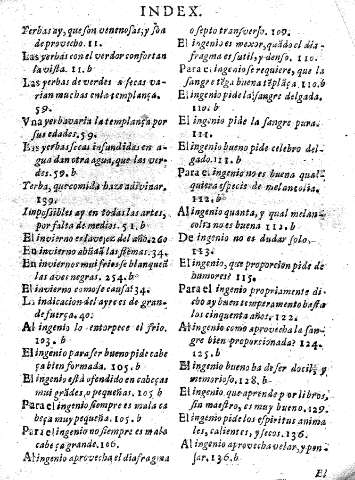 INDEX.
Yerbas ay, que son venenosas, y son
de provecho. 11.
Las yerbas con el verdor confortan
la vista. 11. b
Las yerbas de verdes a secas va-
rian muchas en la templança.
59.
Vna yerba varia la templança por
sus edades. 59.
Las yerbas secas infundidas en a-
gua dan otra agua, que las ver-
des. 59. b
Yerba, que comida haze adivinar.
139.
Impossibles ay en todas las artes,
por falta de medios. 51. b
El invierno es la vejez del año. 260
En invierno abũdã las flemas. 34.
En inviernos mui frios se blanqueã
las aves negras. 254. b
El invierno como se causa? 34.
La indicacion del ayre es de gran-
de fuerça. 40.
Al ingenio lo entorpece el frio.
103. b
El ingenio para ser bueno pide cabe
ça bien formada. 105. b
El ingenio está ofendido en cabeças
mui grãdes, o pequeñas. 105 b
Para el ingenio siempre es mala ca
beça muy pequeña. 105. b
Para el ingenio no siempre es mala
cabeça grande. 106.
Al ingenio aprovecha el diafragma
o septo transverso. 109.
El ingenio es mexor, quãdo el dia-
fragma es sutil, y denso. 110.
Para el ingenio se requiere, que la
sangre tẽga buena tẽplãça. 110. b
El ingenio pide la sangre delgada.
110. b
El ingenio pide la sangre pura.
111.
El ingenio bueno pide celebro del-
gado. 111. b
Para el ingenio no es buena qual-
quiera especie de melancolia.
112. b
Al ingenio quanta, y qual melan-
colia no es buena 112. b
De ingenio no es dudar solo.
113.
El ingenio, que proporcion pide de
humores? 115.
Para el ingenio propriamente di-
cho ay buen temperamento hasta
los cinquenta años. 122.
Al ingenio como aprovecha la san-
gre bien proporcionada? 124.
125. b
El ingenio bueno ha de ser docil, y
memorioso. 128. b
El ingenio que aprende por libros,
sin maestro, es muy bueno. 129.
El ingenio pide los espiritus anima
les, calientes, y secos. 136.
Al ingenio aprovecha velar, y pen-
sar. 136. b
El